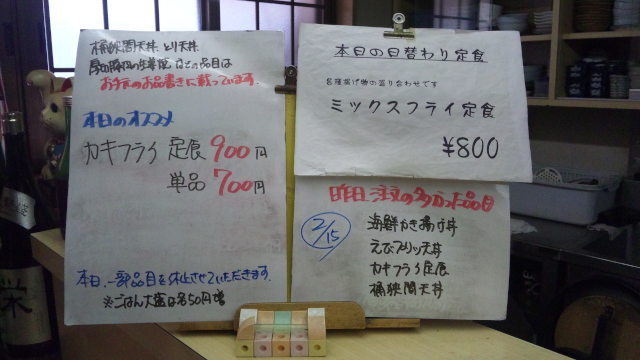 桶狭間天丼、とり天丼
の品目は
お手元のお品書きに載っています。
本日のオススメ
カキフライ定食900円
単品700円
本日、一部品目を休止させていただきます。
※ごはん大盛は各50円増
本日の日替わり定食
各種揚げ物の盛り合わせです
ミックスフライ定食
¥800
昨日、注文の多かった品目
2/15
海鮮かき揚げ丼
えびプリッ天丼
カキフライ定食
桶狭間天丼